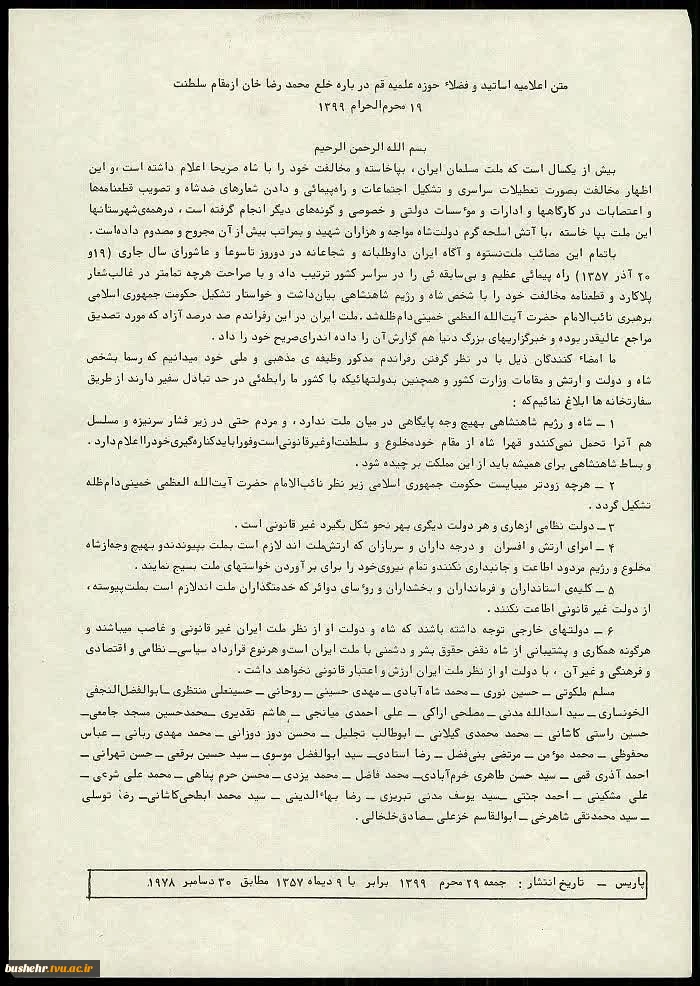 متن اعلامیه اساتید و فضلاء حوزه علمیه قم در باره خلع محمد رضا خان از مقام سلطنت
۱۹ محرم‌الحرام ۱۳۹۹
بسم الله الرحمن الرحیم
بیش از یکسال است که ملت مسلمان ایران ، بپاخاسته و مخالفت خود را با شاه صریحا اعلام داشته است ،و این
اظهار مخالفت بصورت تعطیلات سراسری و تشکیل اجتماعات و راه‌پیمائی و دادن شعارهای ضدشاه و تصویب قطعنامه‌ها
و اعتصابات در کارگاهها و ادارات و موٴسسات دولتی و خصوصی و گونه‌های دیگر انجام گرفته است ، درهمه‌ی‌شهرستانها
این ملت بپا خاسته ،با آتش اسلحه گرم دولت‌شاه مواجه و هزاران شهید و بمراتب بیش از آن مجروح و مصدوم داده‌است .
باتمام این مصائب ملت‌نستوه و آگاه ایران داوطلبانه و شجاعانه در دوروز تاسوعا و عاشورای سال جاری (۱۹و
۲۰ آذر ۱۳۵۷) راه پیمائی عظیم و بی‌سابقه ئی را در سراسر کشور ترتیب داد و با صراحت هرچه تمامتر در غالب‌شعار
پلاکارد و قطعنامه مخالفت خود را با شخص شاه و رژیم شاهنشاهی بیان‌داشت و خواستار تشکیل حکومت جمهوری اسلامی
برهبری نائب‌الامام حضرت آیت‌الله العظمی خمینی‌دام‌ظله‌شد .ملت ایران در این رفراندم صد درصد آزاد که مورد تصدیق
مراجع عالیقدر بوده و خبرگزاریهای بزرگ دنیا هم گزارش آن را داده اندرای‌صریح خود را داد .
ما امضاء کنندگان ذیل با در نظر گرفتن رفراندم مذکور وظیفه ی مذهبی و ملی خود میدانیم که رسما بشخص
شاه و دولت و ارتش و مقامات وزارت کشور و همچنین بدولتهائیکه با کشور ما رابطه‌ئی در حد تبادل سفیر دارند از طریق
سفارتخانه ها ابلاغ نمائیم‌که :
۱ ــ شاه و رژیم شاهنشاهی بهیچ وجه پایگاهی در میان ملت ندارد ، و مردم حتی در زیر فشار سرنیزه و مسلسل
هم آنرا تحمل نمی‌کنندو قهرا شاه از مقام خودمخلوع و سلطنت‌اوغیرقانونی‌است‌وفورا‌بایدکناره‌گیری‌خودرااعلام‌دارد .
و بساط شاهنشاهی برای همیشه باید از این مملکت بر چیده شود .
۲ ــ هرچه زودتر میبایست حکومت جمهوری اسلامی زیر نظر نائب‌الامام حضرت آیت‌الله العظمی خمینی‌دام‌ظله
تشکیل گردد .
۳ ــ دولت نظامی ازهاری و هر دولت دیگری بهر نحو شکل بگیرد غیر قانونی است .
۴ ــ امرای ارتش و افسران و درجه داران و سربازان که ارتش‌ملت اند لازم است بملت بپیوندندو بهیچ وجه‌ازشاه
مخلوع و رژیم مردود اطاعت و جانبداری نکنندو تمام نیروی‌خود را برای بر آوردن خواستهای ملت بسیج نمایند .
۵ ــ کلیه‌ی استانداران و فرمانداران و بخشداران و روٴسای دوائر که خدمتگذاران ملت اندلازم است بملت‌پیوسته ،
از دولت غیر قانونی اطاعت نکنند .
۶ ــ دولتهای خارجی توجه داشته باشند که شاه و دولت او از نظر ملت ایران غیر قانونی و غاصب میباشند و
هرگونه همکاری و پشتیبانی از شاه نقض حقوق بشر و دشمنی با ملت ایران است‌و هرنوع قرارداد سیاسی ــ نظامی و اقتصادی
و فرهنگی و غیر آن ، با دولت او از نظر ملت ایران ارزش و اعتبار قانونی نخواهد داشت .
مسلم ملکوتی ــ حسین نوری ــ محمد شاه آبادی ــ مهدی حسینی ــ روحانی ــ حسینعلی منتظری ــابوالفضل‌النجفی
الخونساری ــ سید اسدالله مدنی ــ مصلحی اراکی ــ علی احمدی میانجی ــ هاشم تقدیری ــمحمدحسین مسجد جامعی‌ــ
حسین راستی کاشانی ــ محمد محمدی گیلانی ــ ابوطالب تجلیل ــ محسن دوز دوزانی ــ محمد مهدی ربانی ــ عباس
محفوظی ــ محمد موٴمن ــ مرتضی بنی‌فضل ــ رضا استادی‌ــ سید ابوالفضل موسوی ــ سید حسین برقعی ــ حسن تهرانی ــ
احمد آذری قمی ــ سید حسن طاهری خرم‌آبادی‌ــ محمد فاضل ــ محمد یزدی ــ محسن حرم پناهی ــ محمد علی شرعی ــ
علی مشکینی ــ احمد جنتی ــسید یوسف مدنی تبریزی ــ رضا بهاءالدینی ــ سید محمد ابطحی‌کاشانی‌ــ رضا توسلی
ــ سید محمدتقی شاهرخی ــ ابوالقاسم خزعلی ــصادق‌خلخالی .
پاریس ــ تاریخ انتشار : جمعه ۲۹ محرم ۱۳۹۹ برابر با ۹ دیماه ۱۳۵۷ مطابق ۳۰ دسامبر ۱۹۷۸
bushehr.tvu.ac.ir